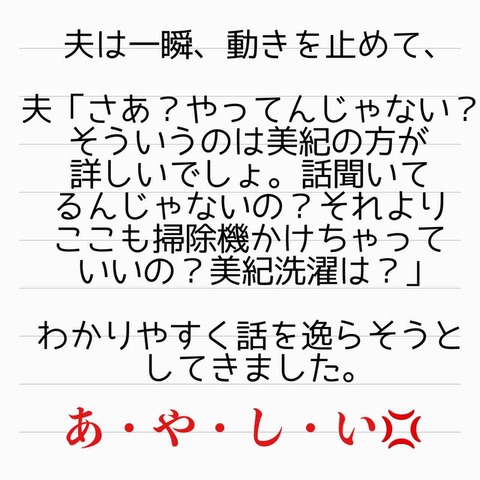 夫は一瞬、動きを止めて、
夫「さあ？やってんじゃない？
そういうのは美紀の方が
詳しいでしょ。話聞いて
るんじゃないの？それより
ここも掃除機かけちゃって
いいの？美紀洗濯は？」
わかりやすく話を逸らそうと
してきました。
あ・や・し・い💢